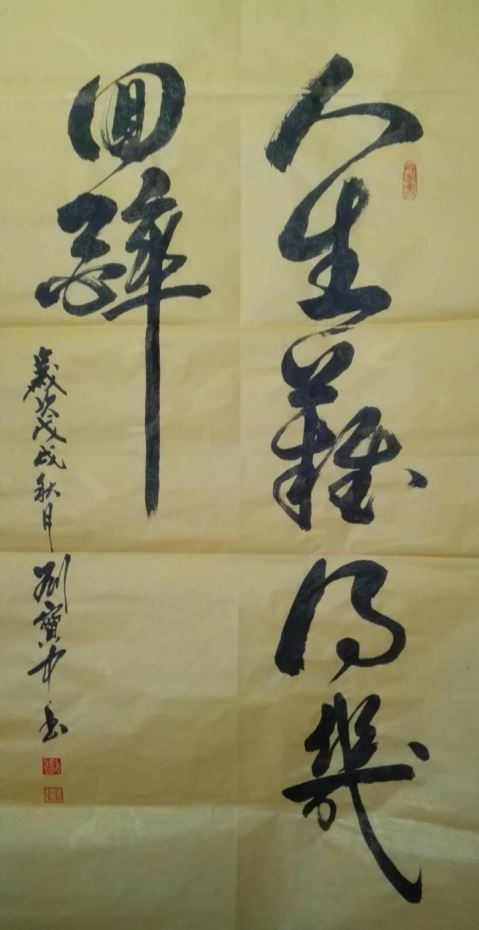 人生難得幾
回醉
歲次戊戌秋月 劉寶中書